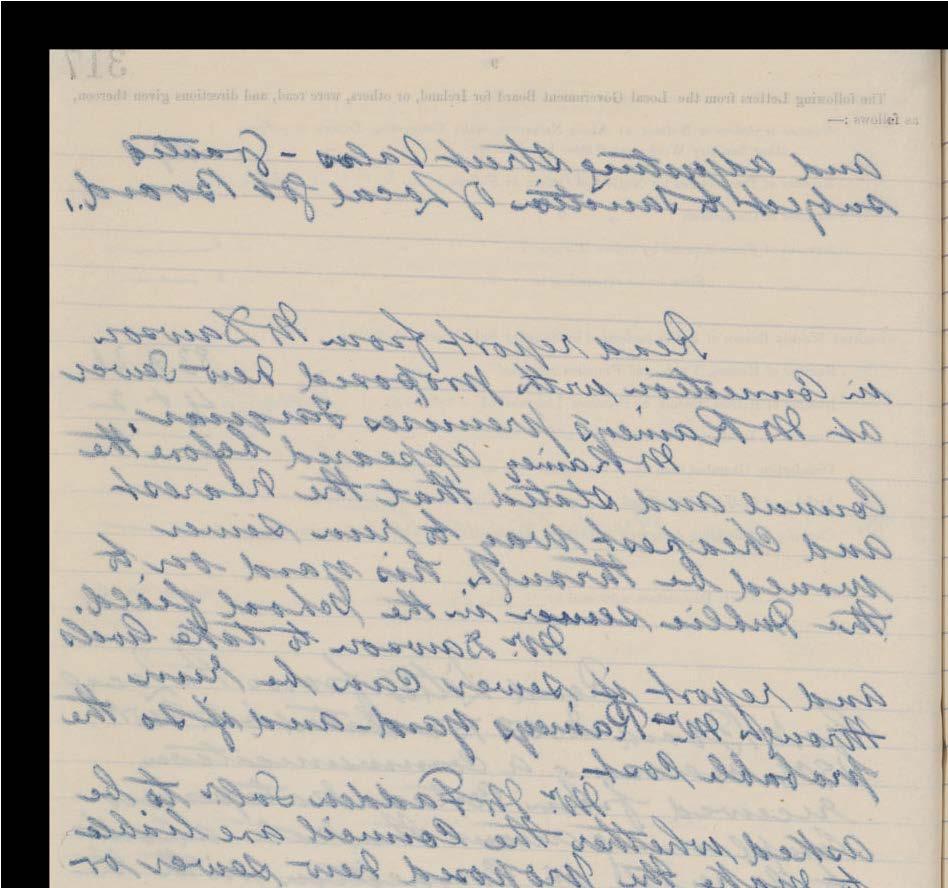 317
9
The following Letters from the Local Government Board for Ireland, or others, were read, and directions given thereon,
as follows :—
and adjusting Street Valves - Granted
subject to Sanction of Local Gt Board.
Read report from Mr Dawson
in Connection with proposed new Sewer
at Mr Raineys premises
Mr Rainey appeared before the
Council and stated that the nearest
and Cheapest way to run sewer
would be through his yard on to
the Public sewer in the School field.
Mr. Dawson to take levels
and report if sewer can be run
through Mr Raineys yard and if so the
probable Cost.
Mr. McFadden Solr. to be
asked whether the Council are liable
to make the proposed new sewer or